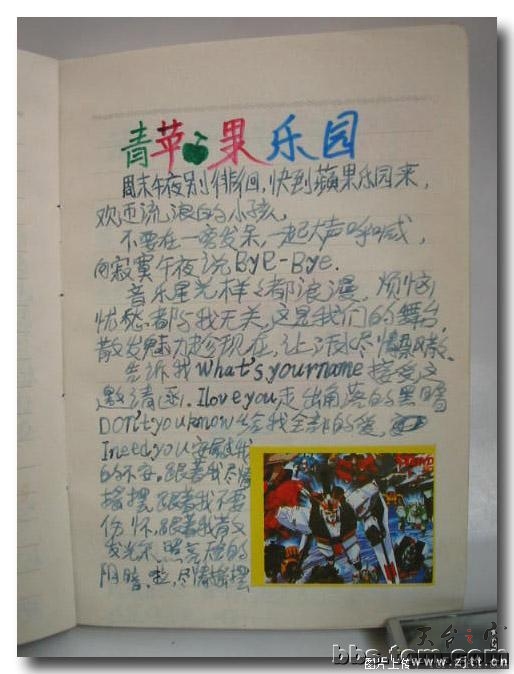 青苹果乐园
周末午夜别徘徊,快到蘋果乐园来,
欢迎流浪的小孩,
不要在一旁发呆,一起大声呼喊,
向寂寞午夜说Bye-Bye.
音乐星光样々都浪漫,烦恼
忧愁都与我无关,这是我们的舞台,
散发魅力趁现在,让汗水尽情
告诉我what's yourname接受这
邀请函.Iloveyou走出角落的黑暗
DON'tyouknow给我全部的爱,
Ineedyou安慰我
的不安.跟着我尽情
摇摆.跟着我不要
伤怀.跟着我散
发光 照亮你的
阴暗. 尽情摇摆
图片上传 www.zjtt.cn
bbs.tom.com